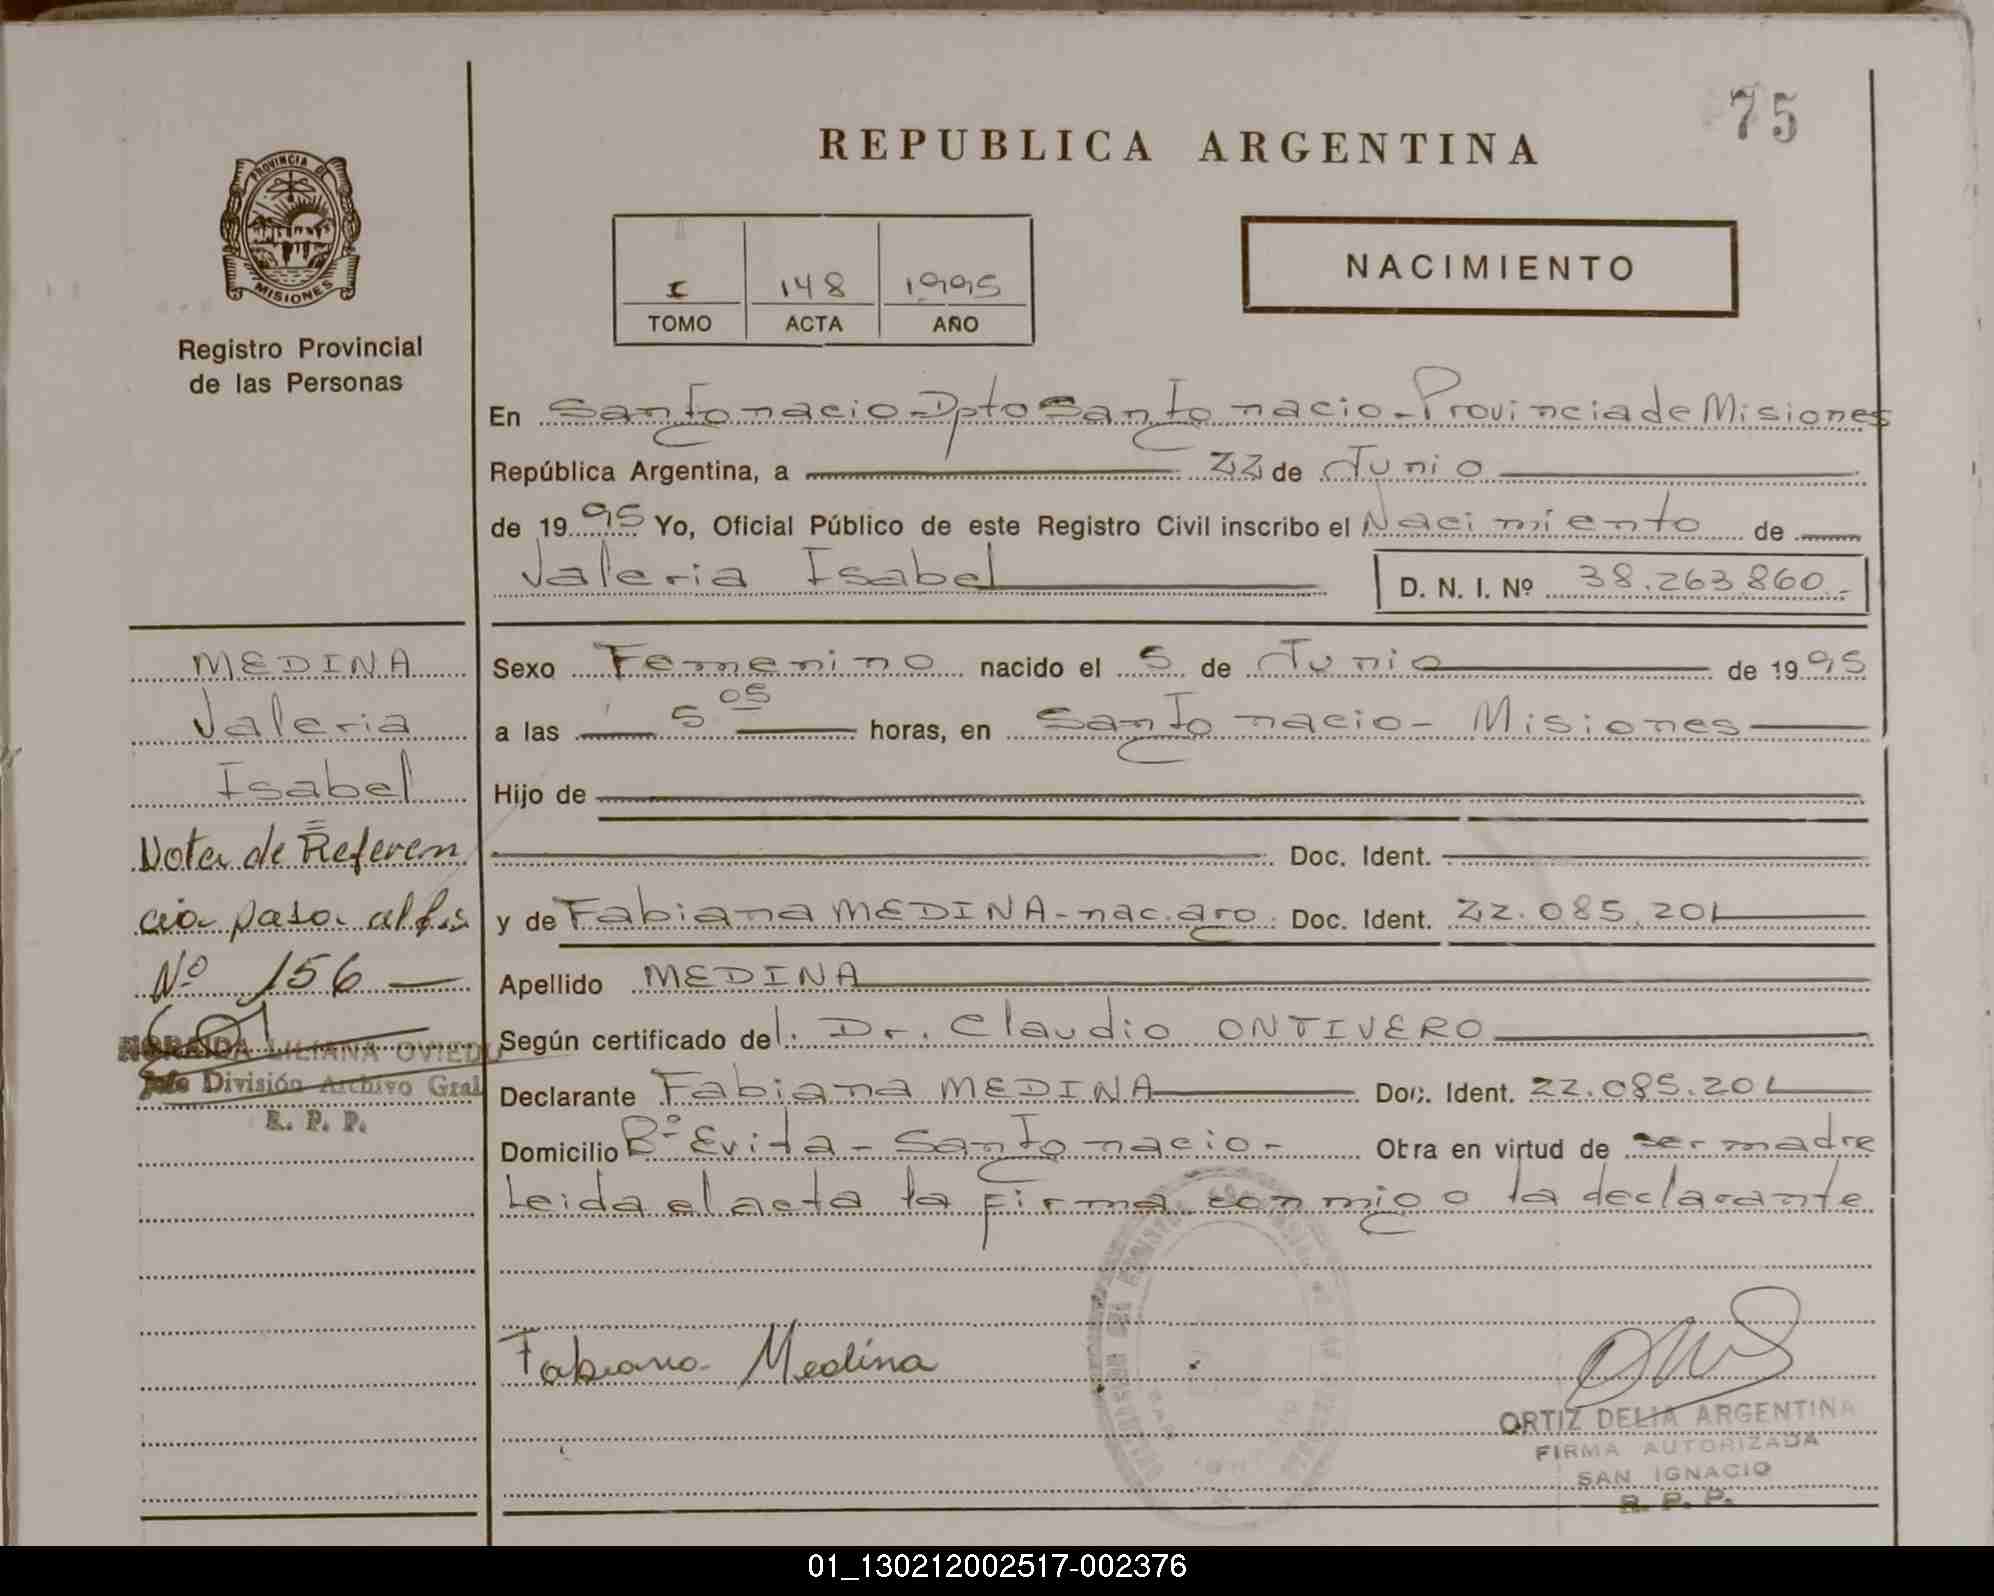 75
REPUBLICA ARGENTINA
PROVINCIA DE
MISIONES
Registro Provincial
de las Personas
I 148 1995
TOMO ACTA AÑO
NACIMIENTO
En San Ignacio - Dpto San Ignacio - Provincia de Misiones
República Argentina, a 22 de Junio
de 1995 Yo, Oficial Público de este Registro Civil inscribo el Nacimiento de
Valeria Isabel
D. N. I. Nº 38.263.860.-
MEDINA
Valeria
Isabel
Nota de Referen
cia pasa al fs
Nº 156
LILIANA OVIEDO
Jefe División Archivo Gral
R. P. P.
Sexo Femenino nacido el 5 de Junio de 1995
a las 5 05 horas, en San Ignacio - Misiones
Hijo de
Doc. Ident.
y de Fabiana MEDINA - nac. arg. Doc. Ident. 22.085.201
Apellido MEDINA
Según certificado del. Dr. Claudio ONTIVERO
Declarante Fabiana MEDINA Doc. Ident. 22.085.201
Domicilio Bº Evita - San Ignacio - Obra en virtud de ser madre
Leida el acta la firma conmigo la declarante
Fabiana Medina
ORTIZ DELIA ARGENTINA
FIRMA AUTORIZADA
SAN IGNACIO
R. P. P.
01_130212002517-002376